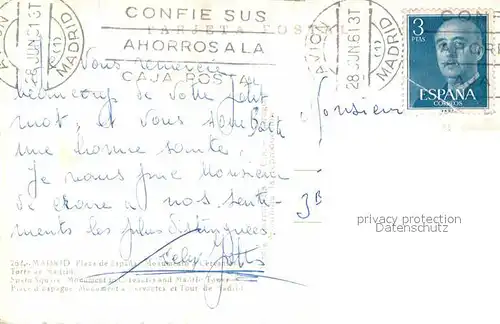 MADRID
AVION
28 JUN.61 3T
(1)
CONFIE SUS
AHORROS A LA
CAJA POSTAL
TARJETA POSTAL
AVION
28 JUN.61 3T
MADRID
(1)
3
PTAS
ESPAÑA
CORREOS
Vous remercie
beaucoup de votre petit
mot, et vous souhaite
une bonne sante.
Je vous prie Monsieur
de croire a nos senti-
ments les plus distinguees.
Monsieur
3B
privacy protection
Sammler.com
MADRID Plaza de España. Monumento a Cervantes
Torre de Madrid
Spain Square. Monument to Cervantes and Madrid Tower
Place d'Espagne. Monument a Cervantes et Tour de Madrid